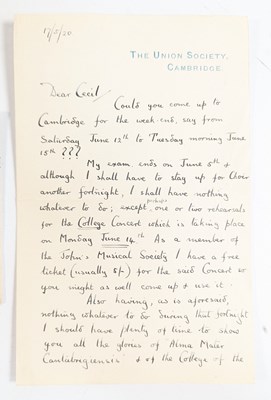 17/5/20
THE UNION SOCIETY,
CAMBRIDGE.
Dear Cecil,
Could you come up to
Cambridge for the week-end, say from
Saturday June 12th to Tuesday morning June
15th ???
My exam ends on June 5th &
although I shall have to stay up for Choir
another fortnight, I shall have nothing
whatever to do; except perhaps one or two rehearsals
for the College Concert which is taking place
on Monday June 14th. As a member of
the John's Musical Society I have a free
ticket (usually 5/-) for the said Concert so
you might as well come up & use it.
Also having, as is aforesaid,
nothing whatever to do during that fortnight
I should have plenty of time to show
you all the glories of Alma Mater
Cantabrigiensis & of the College of the